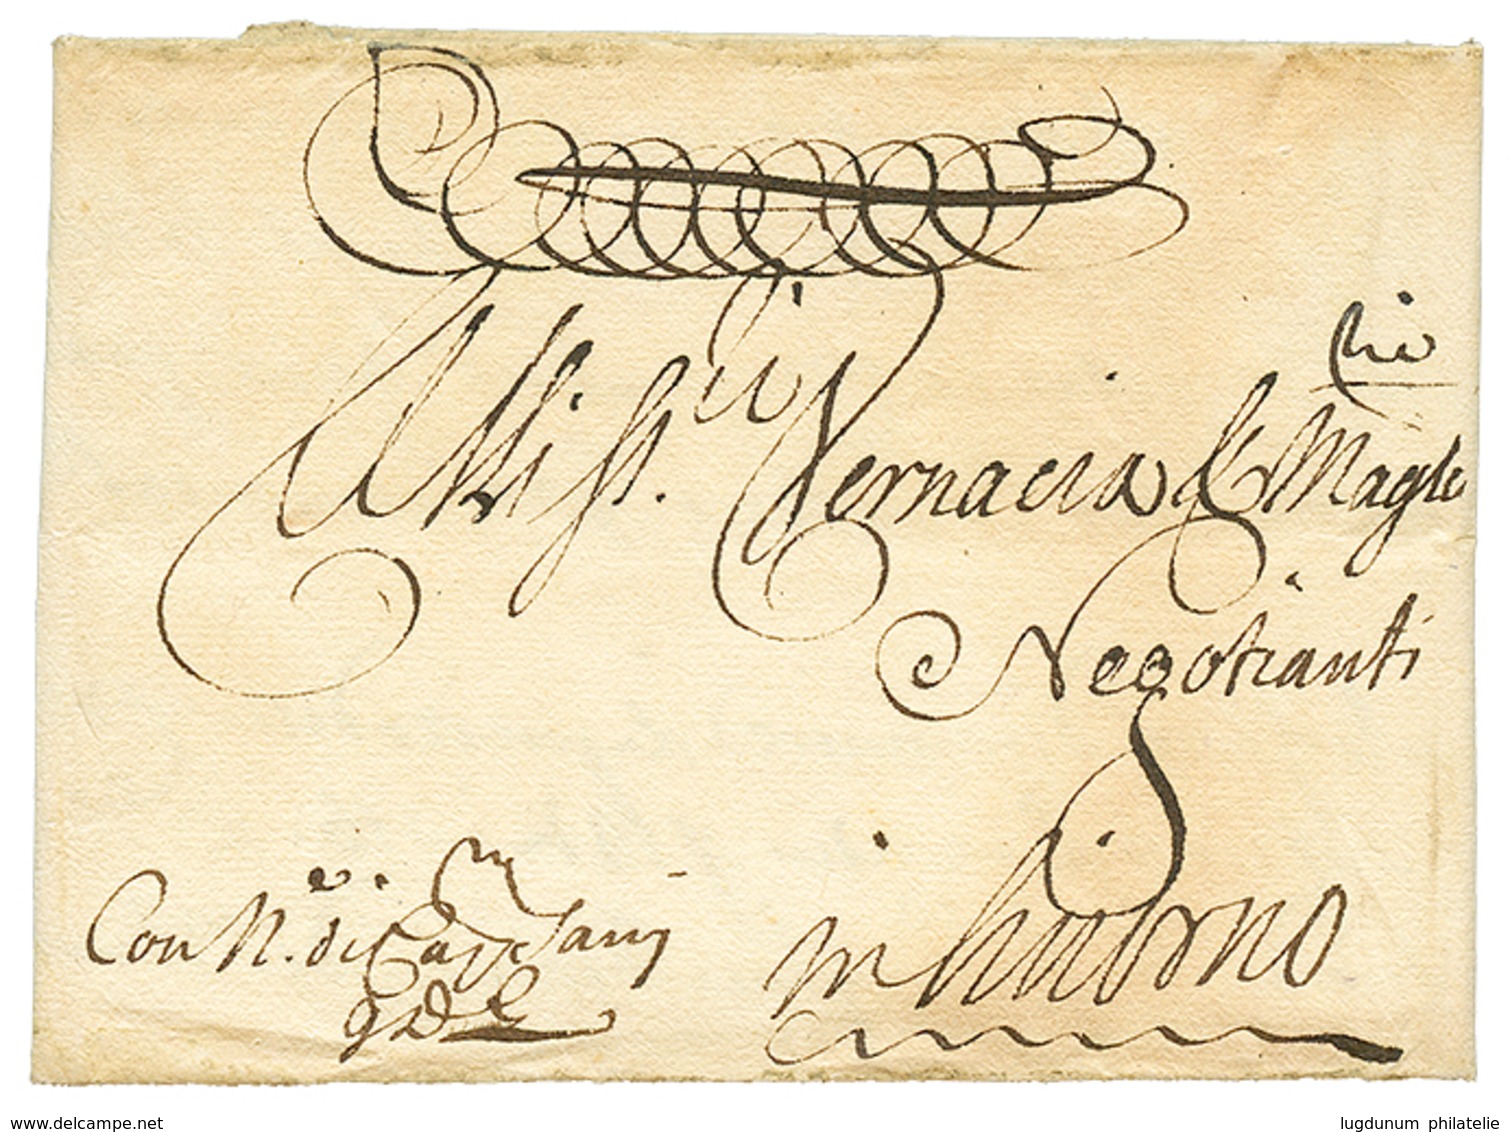 Alli SS.ri Vernacia & Magli
Negotianti
in Livorno
Con N.e di Cap.n
www.delcampe.net
lugdunum philatelie